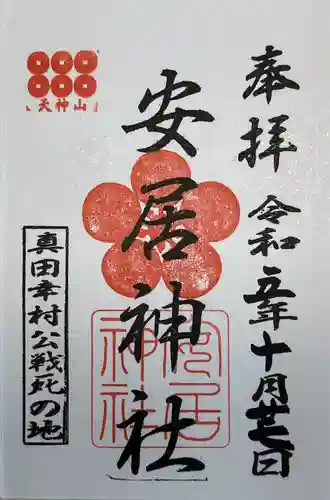 奉拝
令和五年十月廿七日
安居神社
安居神社
天神山
真田幸村公戦死の地